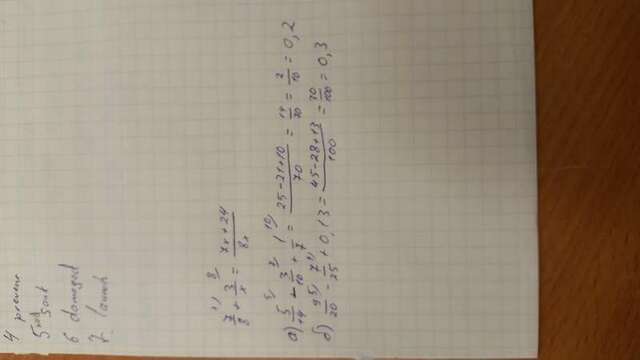 4 prevent
5 sort
6 damaged
7. launch
x) 8)
7/8 + 3/x = 7x+24/8x
а) 5/14 - 3/10 + 1/7 = 25-21+10/70 = 14/70 = 2/10 = 0,2
б) 9/20 - 7/25 + 0,13 = 45-28+13/100 = 30/100 = 0,3